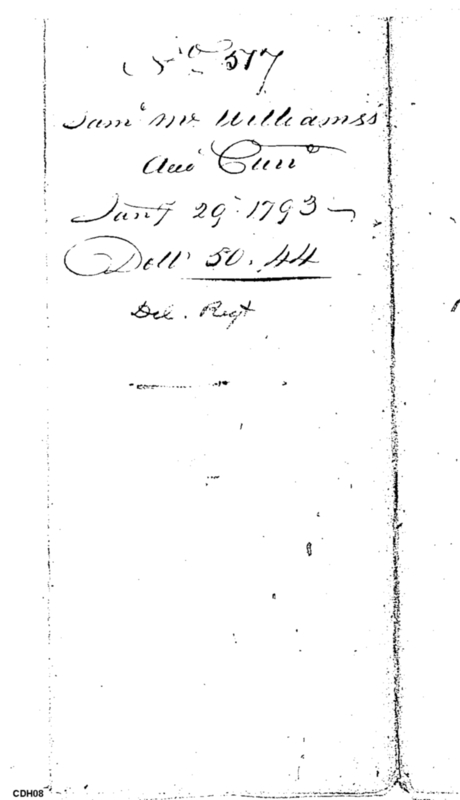 No 517
Saml McWilliams's
Jany 29 1793
Doll 50.44
Del. Regt
CDH08